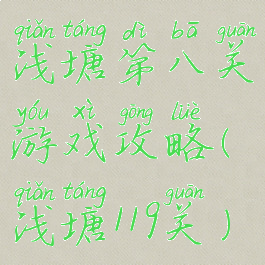 qiǎn táng dì bā guān
浅塘第八关
yóu xì gōng lüè
游戏攻略(
qiǎn táng guān
浅塘119关)